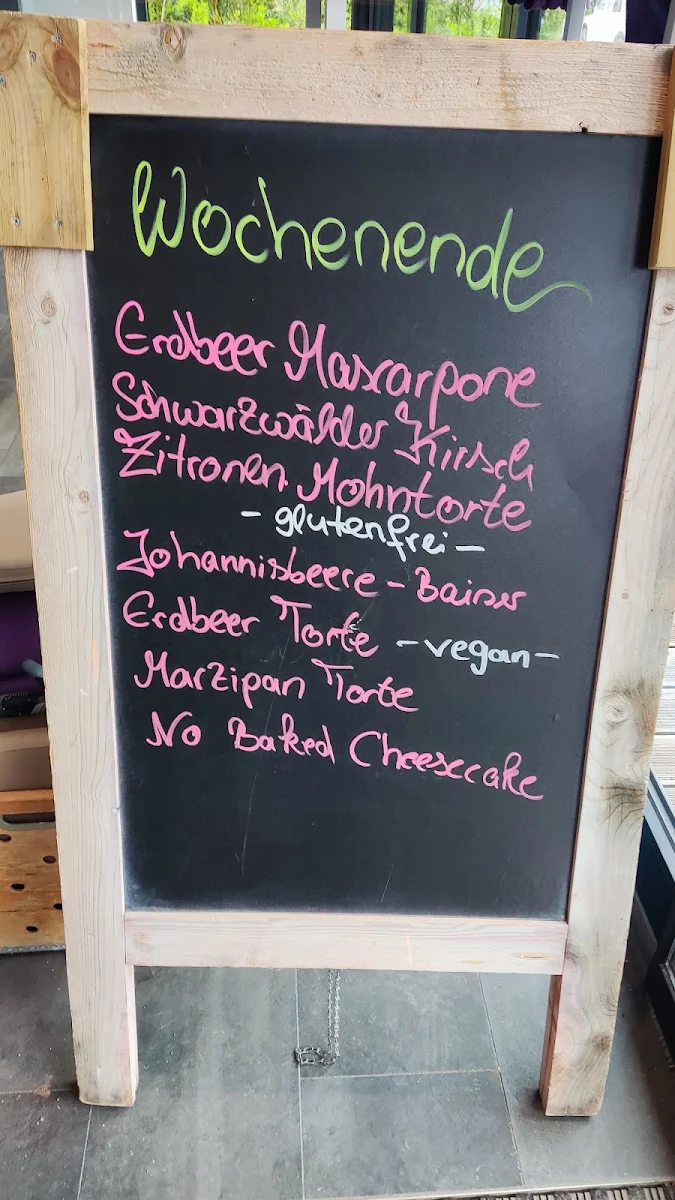 Wochenende
Erdbeer Mascarpone
Schwarzwälder Kirsch
Zitronen Mohntorte
- glutenfrei -
Johannisbeere - Baiser
Erdbeer Torte - vegan -
Marzipan Torte
No Baked Cheesecake